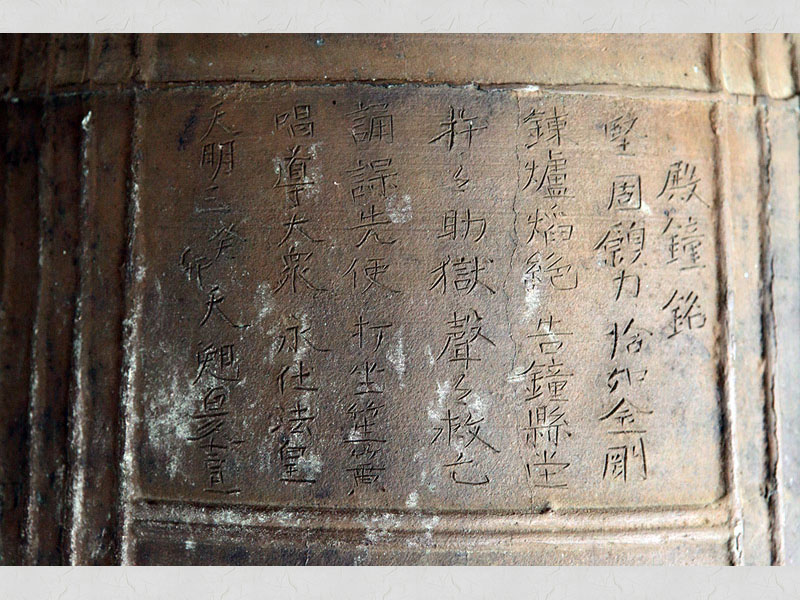 殿鐘銘
堅周願力恰如金剛
錬爐焰絶告鐘縣堂
杵々助獄聲々救亡
誦誤先便打坐筵簧
唱導大衆永仕法皇
天明三癸卯天